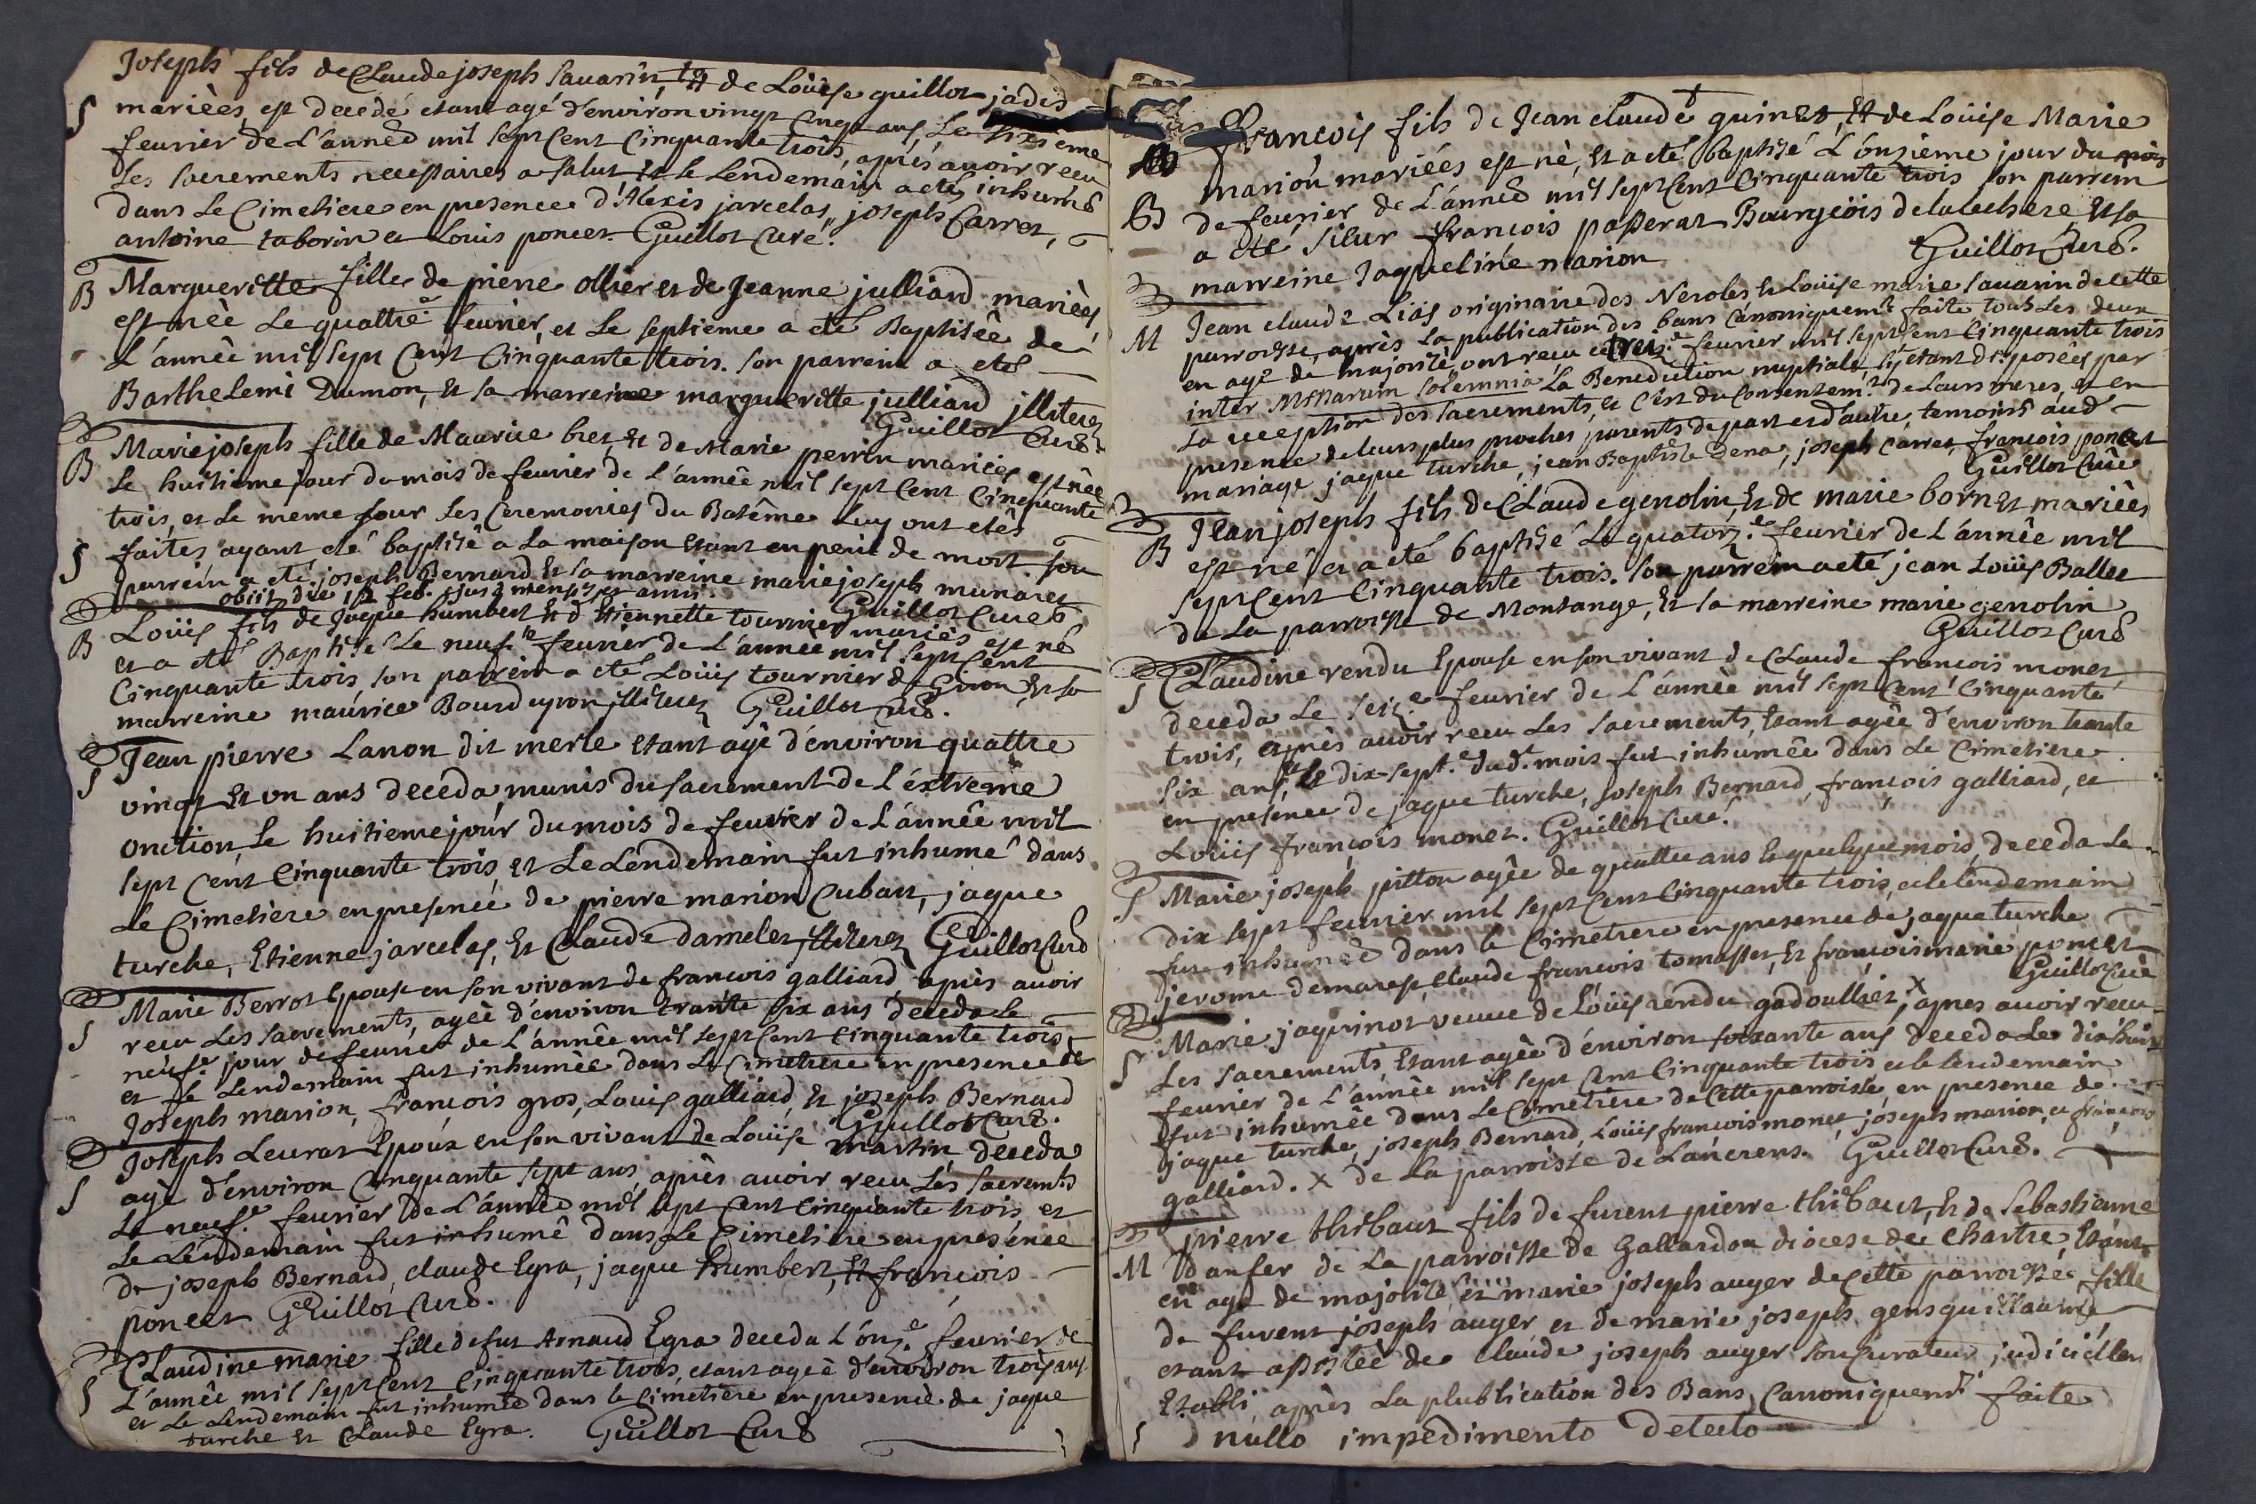 Joseph fils de Claude joseph Sauarin, et de Loüise guillot jadis
S mariées, est decedé etant agé d'environ vingt cinq ans, Le sixieme
feurier de L'année mil sept Cent Cinquante trois, après auoir recu
les sacrements necessaires a salut et le Lendemain a eté inhumé
dans Le Cimetiere en presence d'Alexis jarcelas, joseph Carret,
antoine taborin et Louis poncet. Guillot Curé.
B Marguerитte fille de pierre ollier et de Jeanne julliard mariées,
est née Le quattre feurier, et Le septieme a eté Baptisée de
L'année mil sept Cent Cinquante trois. son parrein a eté
Barthelemi Dumon, et sa marreine margueritte julliard jlliterez
Guillot Curé
B Marie joseph fille de Maurice bret, et de Marie perrin mariées est née
Le huitieme jour du mois de feurier de L'année mil sept Cent Cinquante
trois, et Le meme jour Les Ceremonies du Batême Luy ont etés
S faites ayant eté baptisé a La maison etant en peril de mort son
parrein a eté joseph Bernard et sa marreine marie joseph munaret
obiit die 12 feb. ejus mensis et anni. Guillot Curé
B Loüis fils de jaque humbert et d'Etiennette tournier mariés est né
et a eté Baptisé Le neuf.e feurier de L'année mil sept Cent
Cinquante trois, son parrein a eté Loüis tournier de Giron et sa
marreine maurice Bourdeyron jlliterez Guillot Curé.
S Jean pierre Lanon dit merle etant agé d'environ quattre
vingt et vn ans deceda munis du sacrement de L'extreme
onction, Le huitieme jour du mois de feurier de L'année mil
sept Cent Cinquante trois, et Le Lendemain fut inhumé dans
Le Cimetiere en presence de pierre marion Cubart, jaque
turche, Etienne jarcelas, et Claude dameles jlliterez Guillot Curé
Marie Berrot Epouse en son vivant de francois galliard, après auoir
S recu Les sacrements, agée d'environ trante six ans deceda le
neuf.e jour de feurier de L'année mil sept Cent Cinquante trois,
et le Lendemain fut inhumée dans Le Cimetiere en presence de
Joseph marion, francois gros, Louis galliard, et joseph Bernard
Guillot Curé.
Joseph Leurat Epoux en son vivant de Loüise martin deceda
S agé d'environ Cinquante sept ans, après auoir recu Les sacremts
Le neuf.e feurier de L'année mil sept Cent Cinquante trois, et
Le Lendemain fut inhumé dans Le Cimetiere en presence
de joseph Bernard, claude Egra, jaque humbert, et francois
poncet Guillot Curé.
Claudine marie fille de fut Arnaud Egra deceda L'onz.e feurier de
S L'année mil sept Cent Cinquante trois, etant agée d'environ trois ans
et Le Lendemain fut inhumée dans le Cimetiere en presence de jaque
turche et Claude Egra. Guillot Curé
francois fils de Jean claude quinet, et de Loüise Marie
marion mariées est né, et a eté baptisé L'onzieme jour du mois
B de feurier de L'année mil sept Cent Cinquante trois son parrein
a eté sieur francois passerat Bourgeois de la Lechere et sa
marreine Jaqueline marion Guillot Curé.
Jean claude Lias originaire des Neroles et Loüise marie sauarin de cette
M parroisse, après La publication des bans canoniquemt faite tous Les deux
en age de majorité, ont recu ce feurier mil sept Cent Cinquante trois
inter Missarum solemnia La Benediction nuptiale s'y etant disposées par
La reception des sacrements, et c'est du consentemt de Leurs meres, et en
presence de leurs plus proches parents de part et d'autre, temoins aud.
mariage jaque turche, jean Baptiste Dena, joseph Carret, francois poncet
Guillot Curé
Jean joseph fils de Claude genolin, et de marie bornet mariées
B est né et a eté baptisé Le quatorz.e feurier de L'année mil
sept Cent Cinquante trois. son parrein a eté jean Loüis Ballet
de La parroisse de Montange, et sa marreine marie genolin
Guillot Curé
S Claudine rendu Epouse en son vivant de Claude francois monet
deceda Le seiz.e feurier de L'année mil sept Cent Cinquante
trois, après auoir recu Les sacrements, etant agée d'environ trante
six ans, et Le dix-sept.e dud. mois fut inhumée dans Le Cimetiere
en presence de jaque turche, joseph Bernard, francois galliard, et
Loüis francois monet. Guillot Curé.
S Marie joseph pitton agée de quattre ans et quelque mois, deceda Le
dix sept feurier mil sept Cent Cinquante trois, et le lendemain
fut inhumée dans le Cimetiere en presence de jaque turche
jerome demarest, claude francois tomasset, et francois marie poncet
Guillot Curé
Marie jaquinot veuve de Loüis rendu gadoullet, x apres auoir recu
S Les sacrements, etant agée d'environ soixante ans deceda Le dix huit
feurier de L'année mil sept Cent Cinquante trois et le lendemain
fut inhumée dans Le Cimetiere de Cette parroisse, en presence de
jaque turche, joseph Bernard, Loüis francois monet joseph marion, et francois
galliard. x de La parroisse de Lancrens. Guillot Curé.
pierre thibaut fils de furent pierre thibaut, et de Sebastienne
M danfer de La parroisse de Gallardon diocese de Chartre, etant
en age de majorité et marie joseph auger de Cette parroisse fille
de furent joseph auger et de marie joseph gensquillaume
etant assistée de claude joseph auger son Curateur judiciellem
Etabli, après La plublication des Bans Canoniquemt faite
nullo impedimento detecto